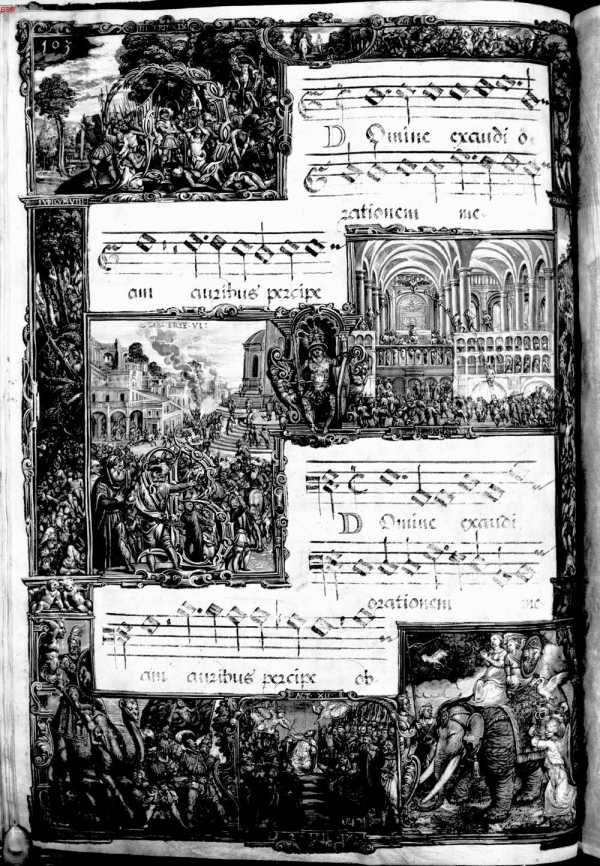 103
Domine exaudi o-
rationem me-
am auribus percipe
Domine exaudi
orationem me
am auribus percipe ob-
ACT. XII.